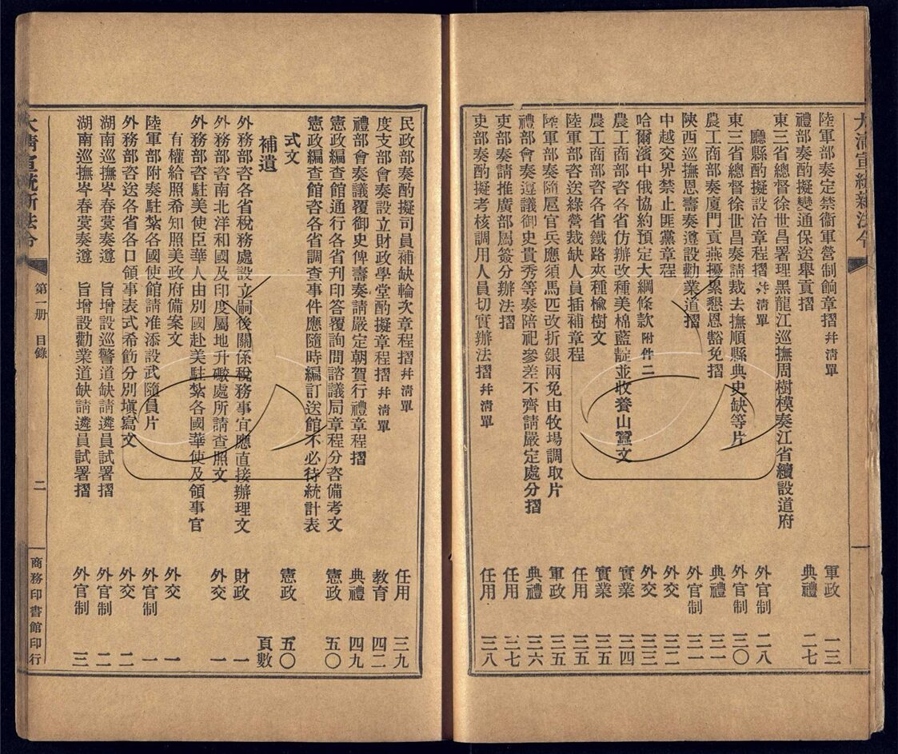 大清宣統新法令
陸軍部奏定禁衞軍營制餉章摺 幷淸單 軍政 一三
禮部奏酌擬變通保送舉貢摺 典禮 二七
東三省總督徐世昌署理黑龍江巡撫周樹模奏江省續設道府
廳縣酌擬設治章程摺 幷淸單 外官制 二八
東三省總督徐世昌奏請裁去撫順縣典史缺等片 外官制 三〇
農工商部奏廈門貢燕擾累懇恩豁免摺 典禮 三一
陝西巡撫恩壽奏遵設勸業道摺 外官制 三一
中越交界禁止匪黨章程 外交 三二
哈爾濱中俄協約預定大綱條款 附件二 外交 三三
農工商部咨各省仿辦改種美棉藍靛並收養山蠶文 實業 三四
農工商部咨各省鐵路夾種橡樹文 實業 三五
陸軍部咨送綠營裁缺人員插補章程 任用 三五
陸軍部奏隨扈官兵應須馬匹改折銀兩免由牧場調取片 軍政 三五
禮部會奏遵議御史貴秀等奏陪祀參差不齊請嚴定處分摺 典禮 三六
吏部奏請推廣部屬簽分辦法摺 任用 三七
吏部奏酌擬考核調用人員切實辦法摺 幷淸單 任用 三八
民政部奏酌擬司員補缺輪次章程摺 幷淸單 任用 三九
度支部會奏設立財政學堂酌擬章程摺 幷淸單 教育 四二
禮部會奏議覆御史俾壽奏請嚴定朝賀行禮章程摺 典禮 四九
憲政編查館通行各省刊印答覆詢問諮議局章程分咨備考文 憲政 五〇
憲政編查館咨各省調查事件應隨時編訂送館不必待統計表
式文 憲政 五〇
補遺 頁數
外務部咨各省稅務處設立嗣後關係稅務事宜應直接辦理文 財政 一
外務部咨南北洋和國及印度屬地升礮處所請查照文 外交 一
外務部咨駐美使臣華人由別國赴美駐紮各國華使及領事官
有權給照希知照美政府備案文 外交 一
陸軍部附奏駐紮各國使館請准添設武隨員片 外官制 一
外務部咨送各省各口領事表式希飭分別塡寫文 外交 二
湖南巡撫岑春蓂奏遵 旨增設巡警道缺請遴員試署摺 外官制 二
湖南巡撫岑春蓂奏遵 旨增設勸業道缺請遴員試署摺 外官制 三
大淸宣統新法令
第一册 目錄
二
商務印書館印行